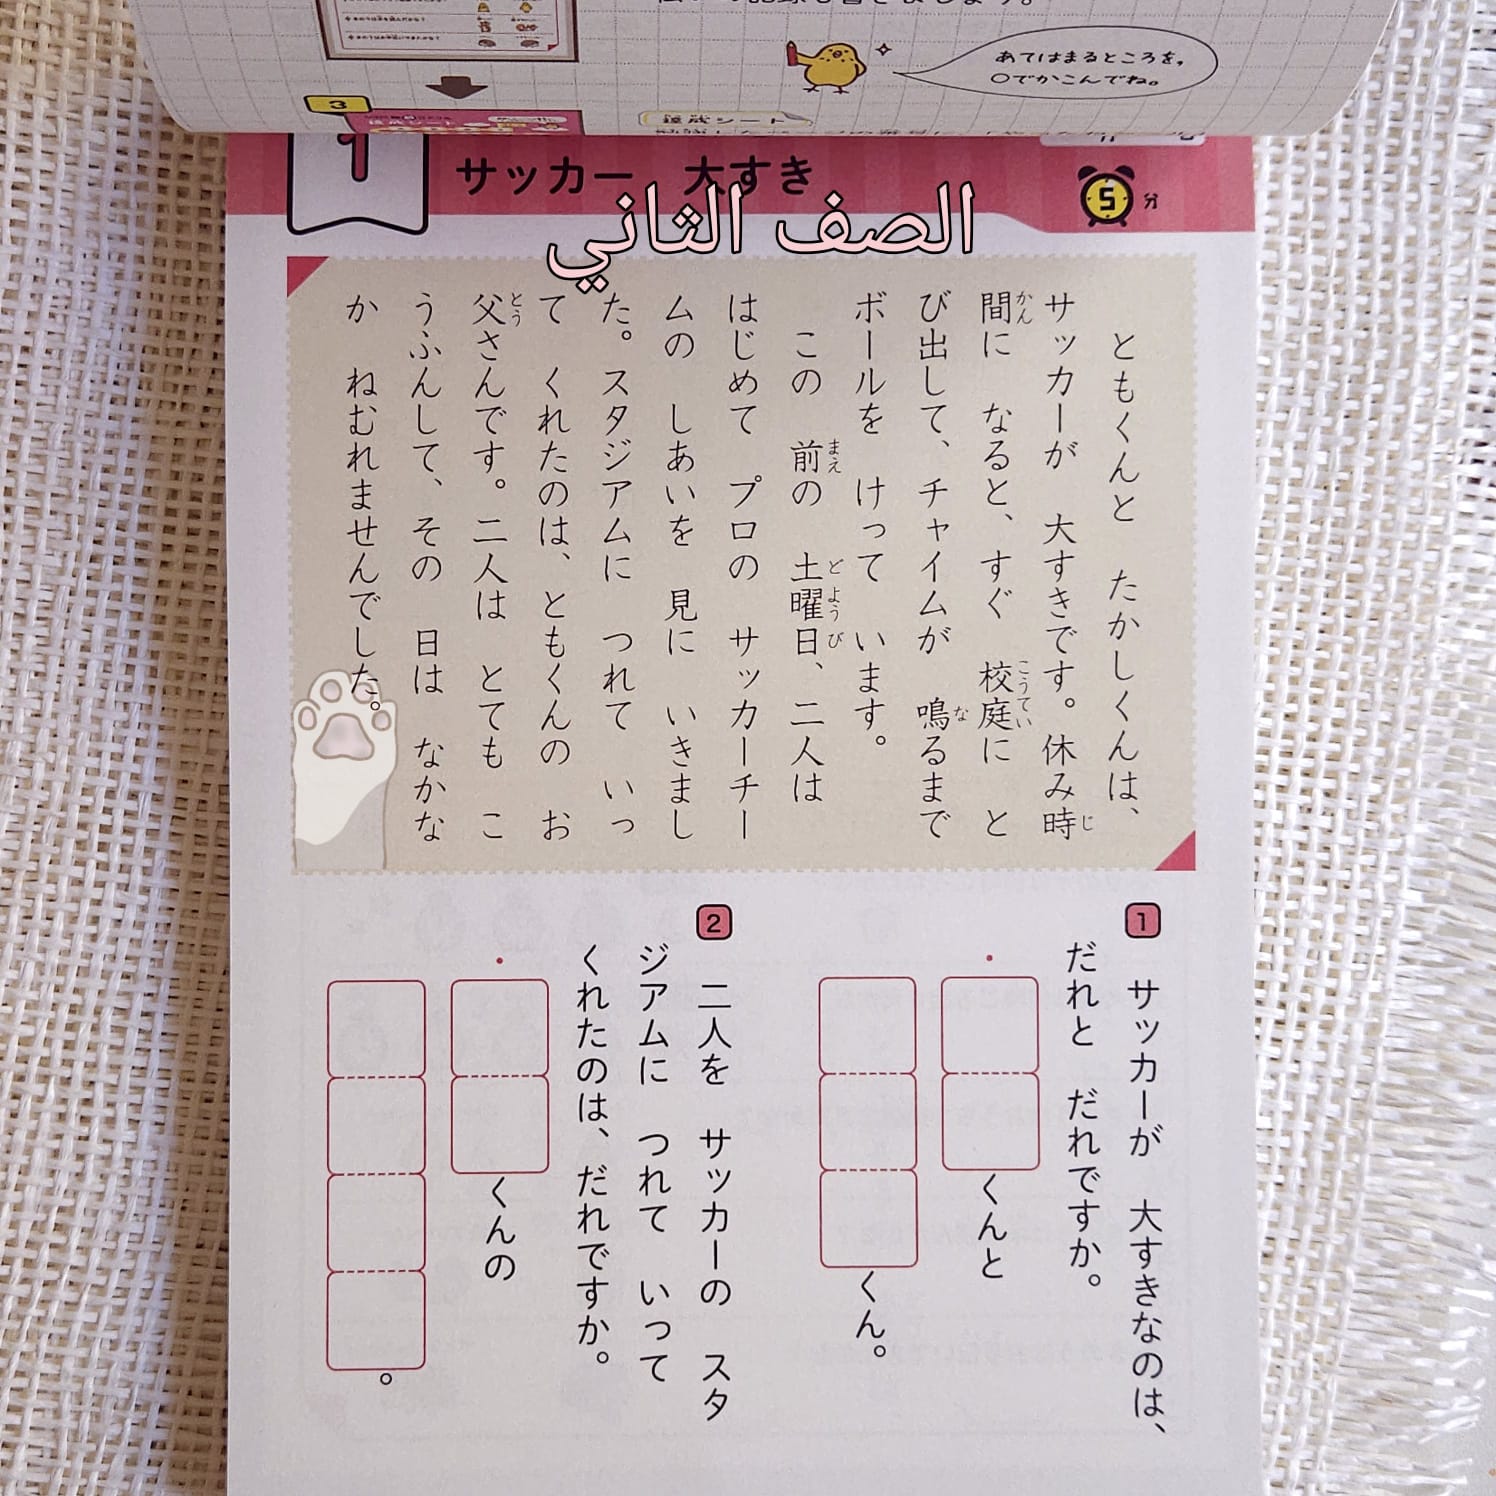 あてはまるところを、
○でかこんでね。
3
達成シート
1
サッカー 大すき
5分
الصف الثاني
ともくんと たかしくんは、
サッカーが 大すきです。休み時
間に なると、すぐ 校庭に と
び出して、チャイムが 鳴るまで
ボールを けって います。
この 前の 土曜日、二人は
はじめて プロの サッカーチー
ムの しあいを 見に いきまし
た。スタジアムに つれて いっ
て くれたのは、ともくんの お
父さんです。二人は とても こ
うふんして、その 日は なかな
か ねむれませんでした。
じ
かん
こうてい
な
まえ
どようび
とう
1
サッカーが 大すきなのは、
だれと だれですか。
・
くんと
くん。
2
二人を サッカーの スタ
ジアムに つれて いって
くれたのは、だれですか。
・
くんの
。